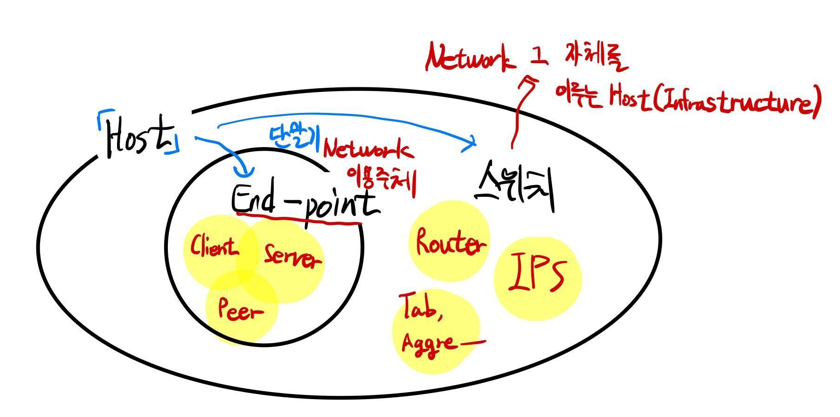 Network 그 자체를
이루는 Host(Infrastructure)
「Host」
단말기
Network
이용주체
End-point
스위치
Client
Server
Peer
Router
IPS
Tab,
Aggre—